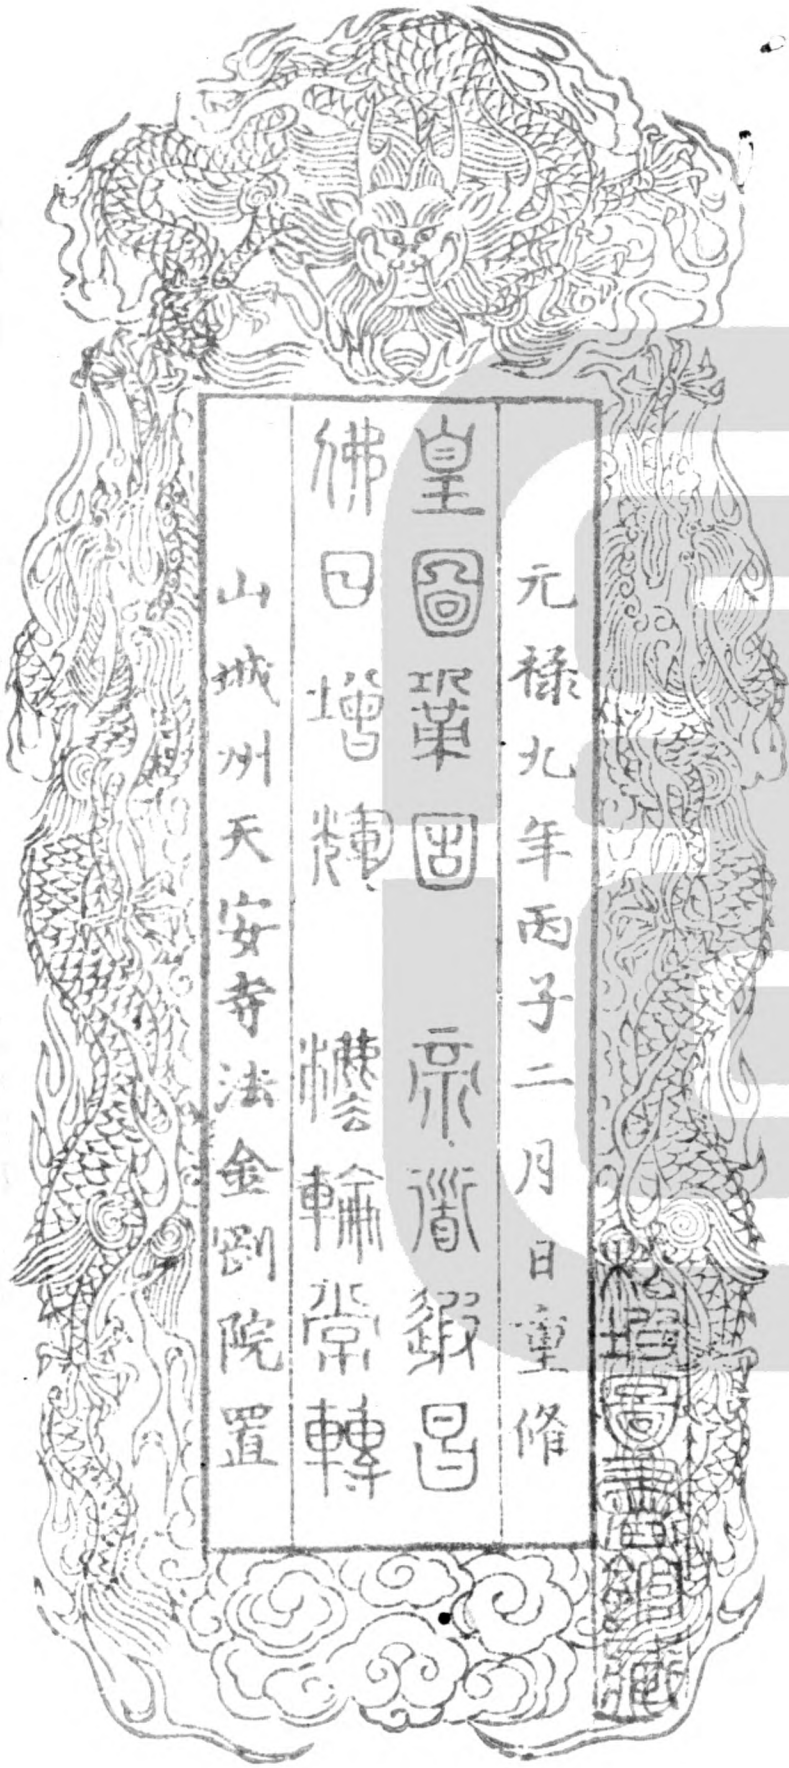 元禄九年丙子二月 日重脩
皇圖鞏固 帝道遐昌
佛日增輝 灋輪常轉
山城州天安寺法金剛院置
圖書館藏